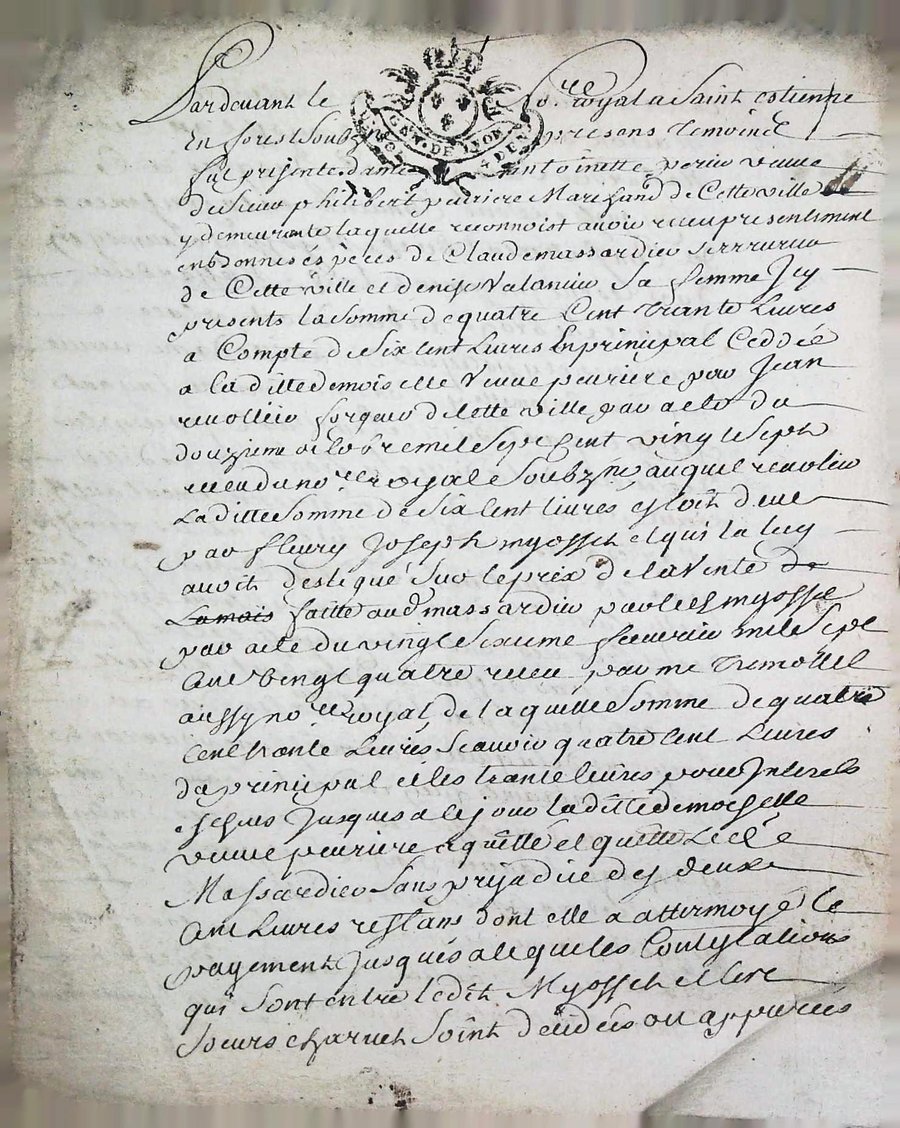 Pardevant le no.re royal a Saint estienne
En forest Soubz presens temoins
fut presente dame antoinette perin veuve
de Sieur philibert peuriere Marchand de Cette ville
y demeurante laquelle reconnoist avoir receu presentement
en bonnes espéces de Claude massardier Serrurier
de Cette ville et denise valancier Sa femme Icy
presents la Somme de quatre Cent trante Livres
a Compte de Six Cent Livres En principal Ceddée
a laditte demoiselle veuve peuriere par Jean
revollier forgeur de cette ville par acte du
douzieme octobre mil Sept Cent vingt Sept
receu du no.re royal Soubz.né, auquel revolier
La ditte Somme de Six Cent livres estoit deue
par fleury Joseph myosset et qui la luy
avoit destiqué Sur le prix de la vente de
Lamais faitte aud massardier par led myosset
par acte du vingt Sixieme feuvrier mil Sept
Cent vingt quatre receu par me tremollet
aussy no.re royal, de laquelle Somme de quatre
Cent trante Livres Scavoir quatre Cent Livres
du principal et les trante livres pour Interets
escheus Jusques a ce jour laditte demoiselle
veuve peuriere a quitté et quitte Led
Massardier Sans prejudice des deux
Cent Livres restans dont elle a attermoyé le
payement Jusqués a ce que les Contestations
qui Sont entre ledit Myosset et Les
Soeurs charnet Soint decidées ou appurées
GEN. DE LYON